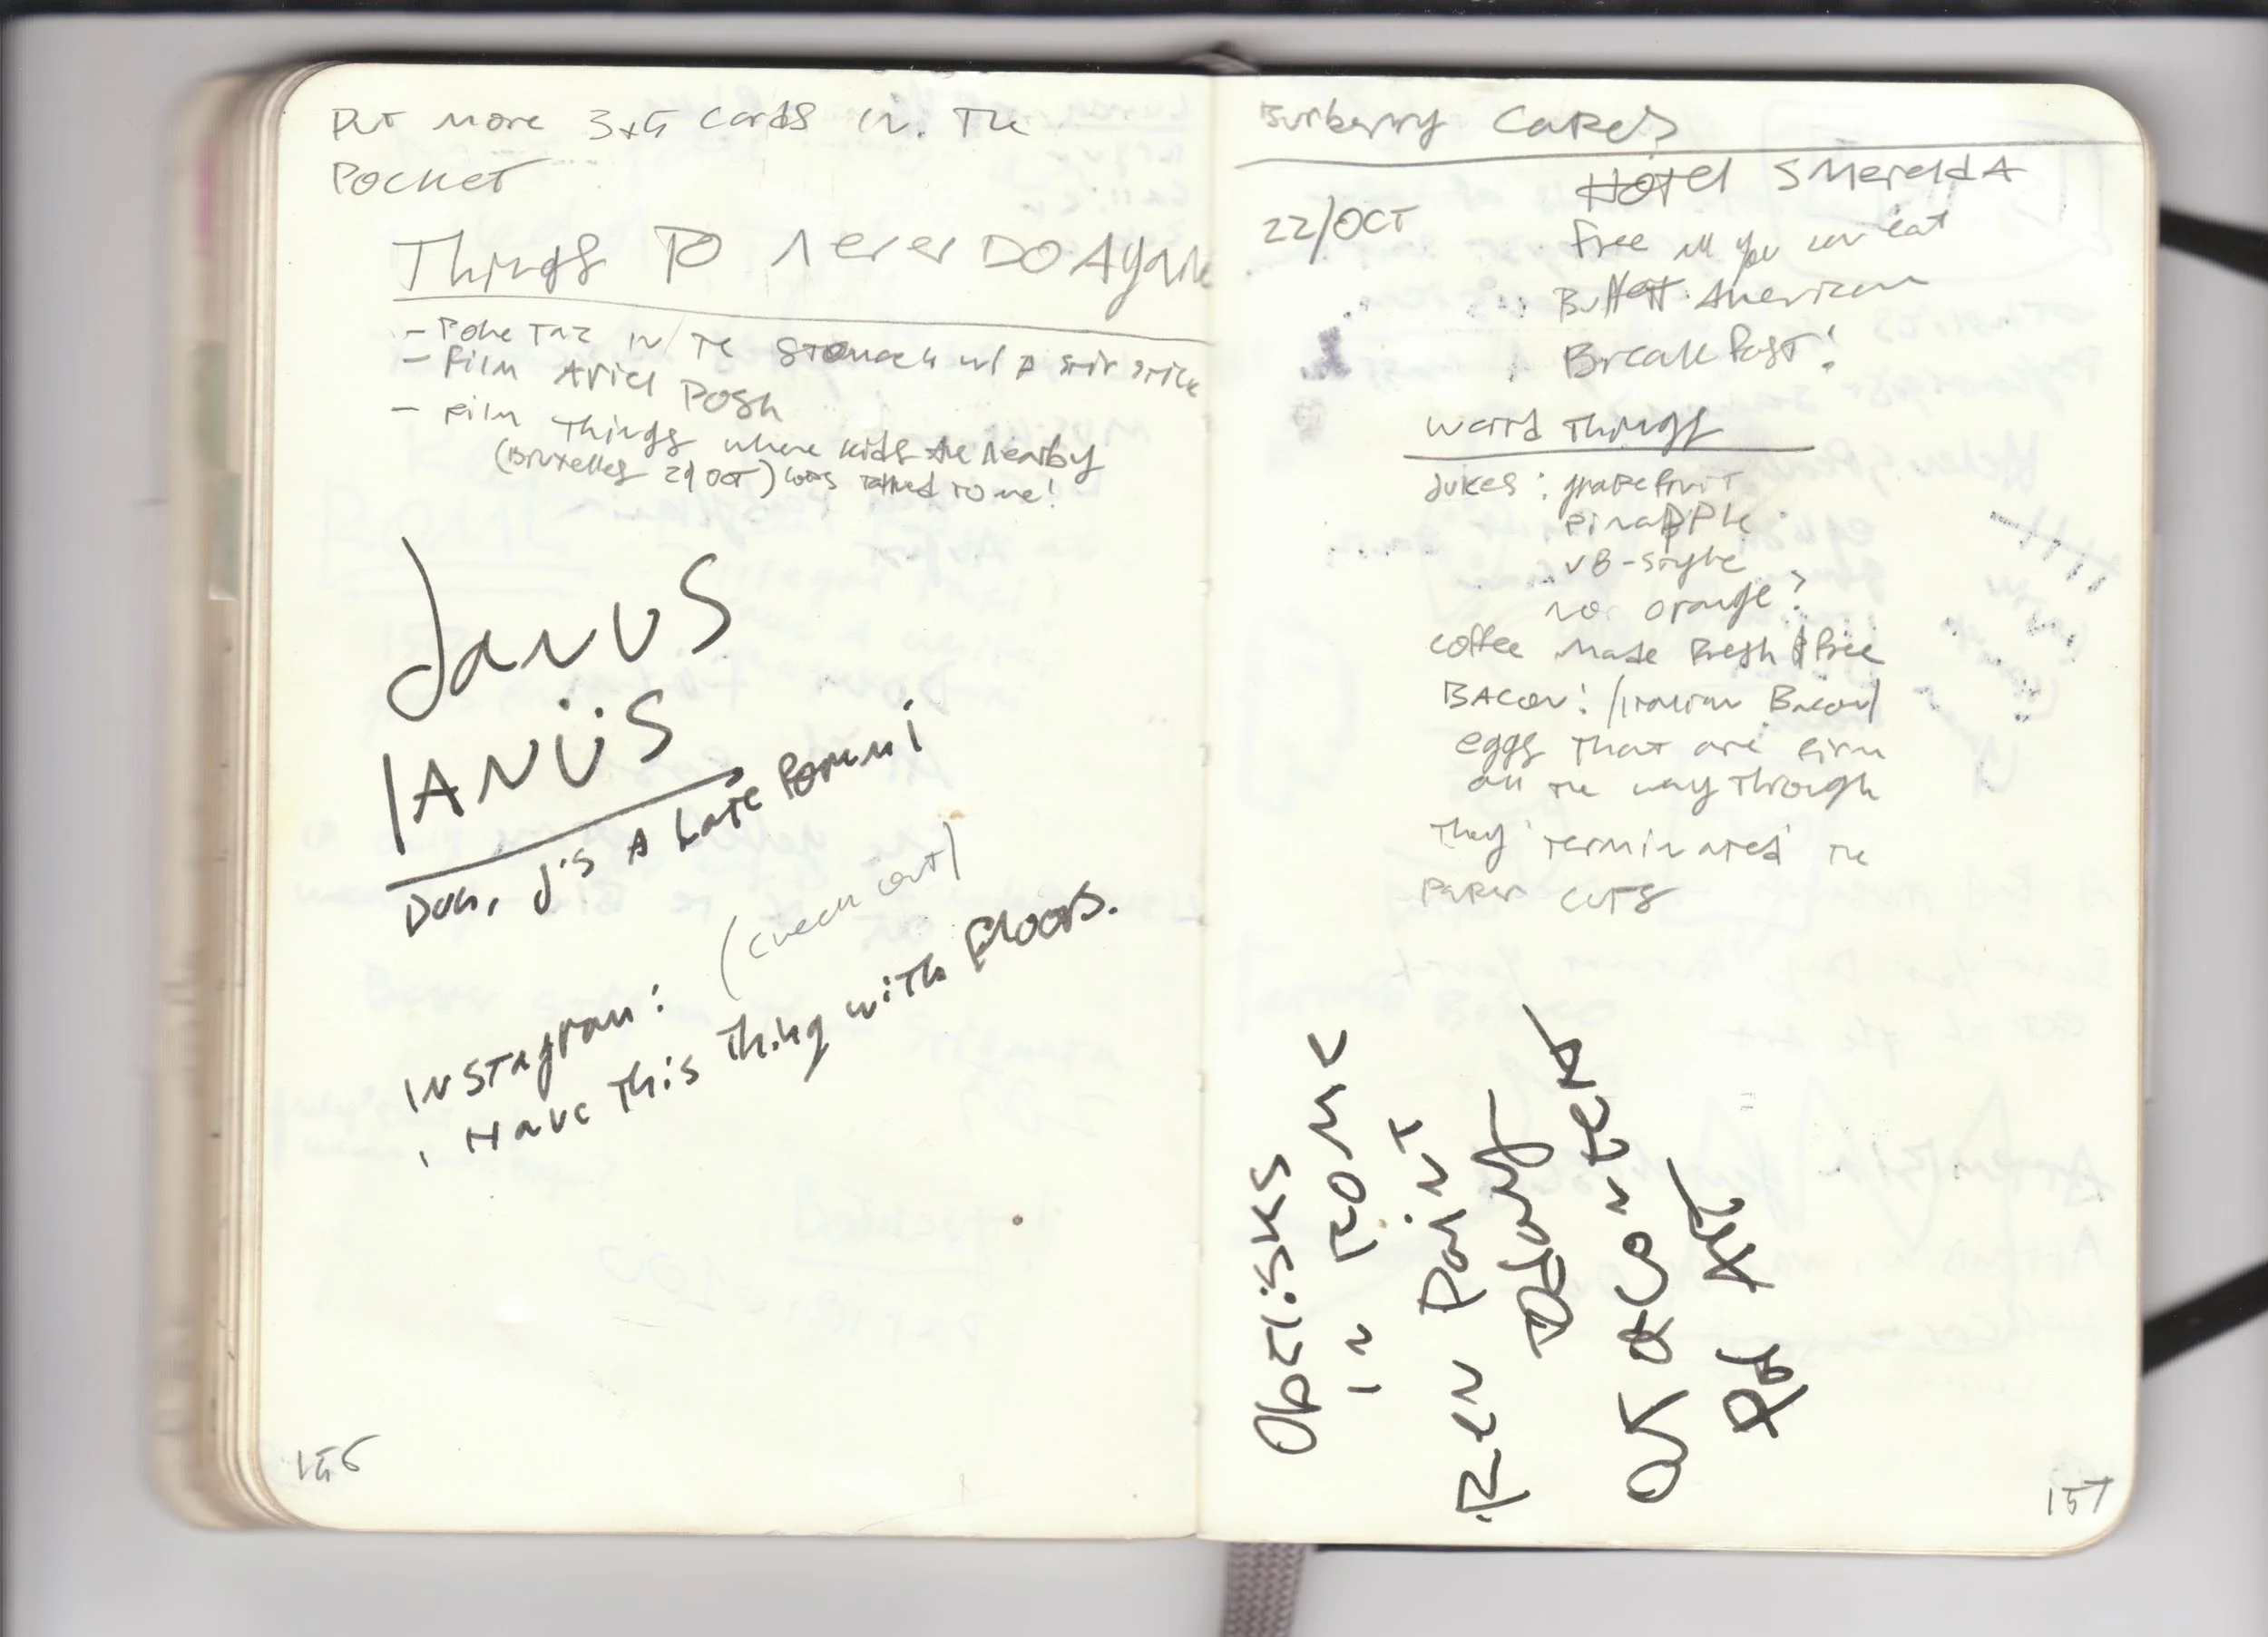 Put more 3x5 cards in. The
Pocket
Things To Never DO Again
- Poke Taz in/ The Stomach w/ A stir stick
- Film Ariel Posh
- Film Things where kids Are Nearby
(Bruxelles 21 OCT) cops Talked to me!
Janus
IANÜS
Duh, J's A Late Romni
(check out)
INSTAgram:
I Have This Thing with Floors.
156
Burberry Capes
22/OCT
Hotel SMereldA
Free all you can eat
Buffett American
BreakFast!
weird Things
Jukes: grapefruit
PinaPPle
V8-style
no orange?
coffee made Fresh & free
BAcon! /Italian Bacon/
eggs That are Firm
all The way Through
They 'terminated' The
Paper cuts
Obelisks
in ROMe
Pen Point
157